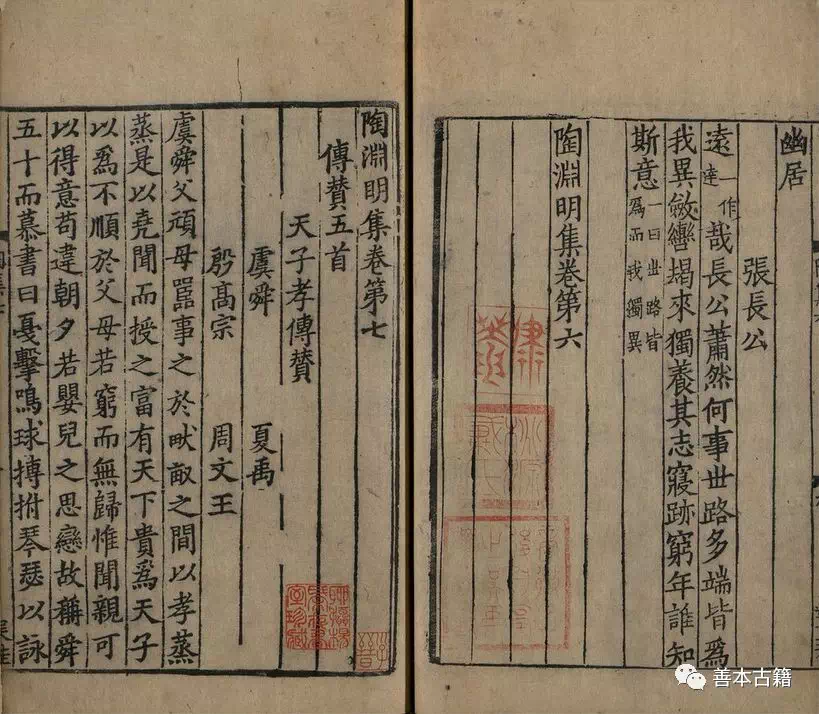 幽居
張長公
遠一作達哉長公蕭然何事世路多端皆爲
我異斂轡朅來獨養其志寢跡窮年誰知
斯意一曰世路皆爲而我獨異
陶淵明集卷第六
陶淵明集卷第七
傳賛五首
天子孝傳賛
虞舜 夏禹
殷髙宗 周文王
虞舜父頑母嚚事之於畎畝之間以孝蒸
蒸是以堯聞而授之富有天下貴爲天子
以爲不順於父母若窮而無歸惟聞親可
以得意苟違朝夕若嬰兒之思戀故稱舜
五十而慕書曰戛擊鳴球搏拊琴瑟以詠
善本古籍